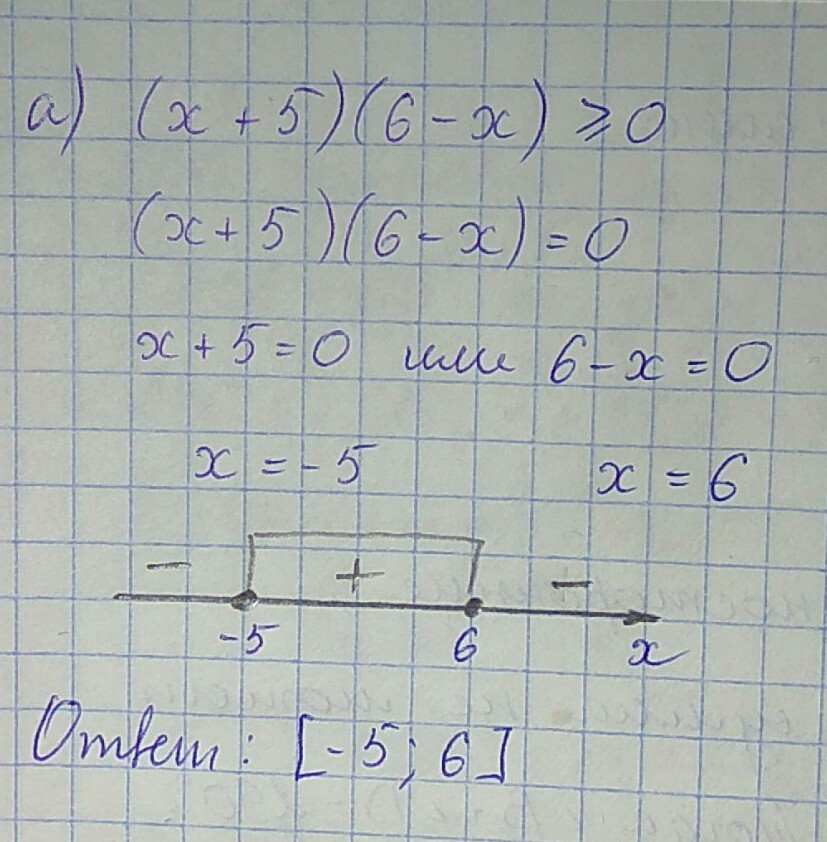 а) (x + 5)(6 - x) ≥ 0
(x + 5)(6 - x) = 0
x + 5 = 0 или 6 - x = 0
x = -5 x = 6
- + -
-5 6 x
Ответ: [-5; 6]